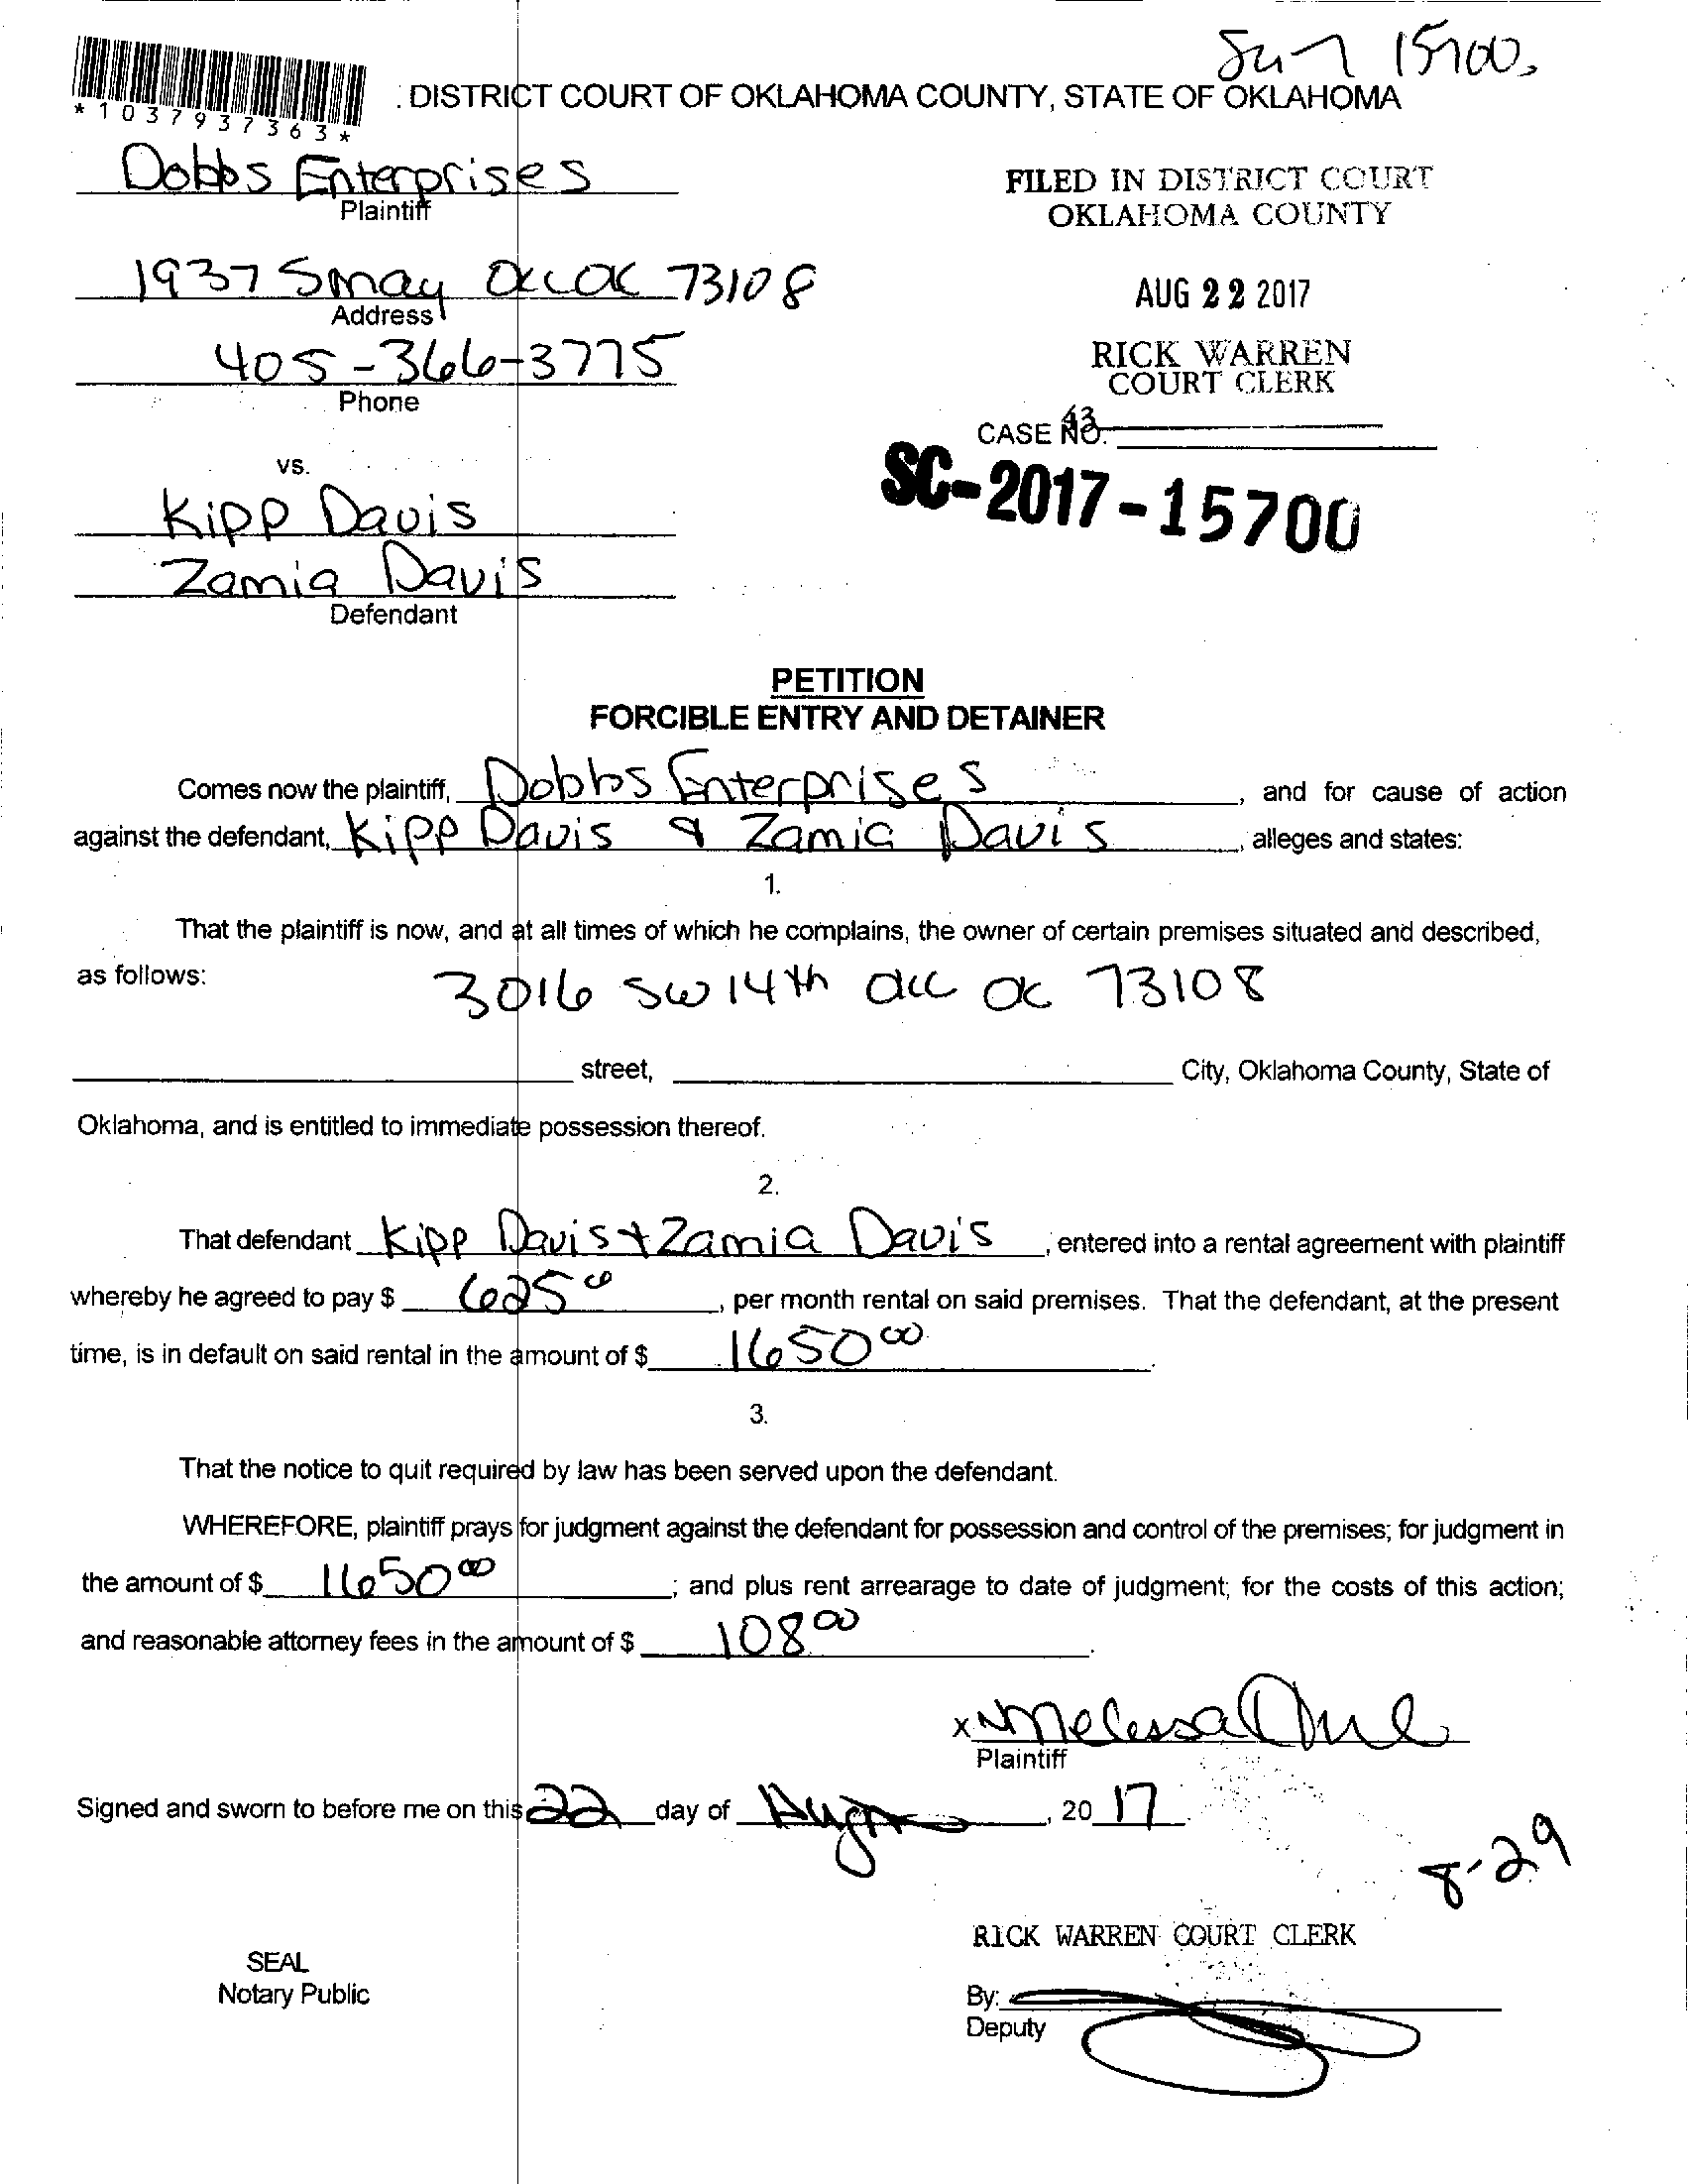 15700
*1037937363*
DISTRICT COURT OF OKLAHOMA COUNTY, STATE OF OKLAHOMA
Dobbs Enterprises
Plaintiff
FILED IN DISTRICT COURT
OKLAHOMA COUNTY
1937 S May OKC OK 73108
Address
AUG 22 2017
405-366-3775
Phone
RICK WARREN
COURT CLERK
43
CASE NO.
vs.
SC-2017-15700
Kipp Davis
Zamia Davis
Defendant
PETITION
FORCIBLE ENTRY AND DETAINER
Comes now the plaintiff, Dobbs Enterprises, and for cause of action
against the defendant, Kipp Davis & Zamia Davis, alleges and states:
1.
That the plaintiff is now, and at all times of which he complains, the owner of certain premises situated and described,
as follows: 3016 SW 14th OKC OK 73108
street, City, Oklahoma County, State of
Oklahoma, and is entitled to immediate possession thereof.
2.
That defendant Kipp Davis + Zamia Davis, entered into a rental agreement with plaintiff
whereby he agreed to pay $ 625 00, per month rental on said premises. That the defendant, at the present
time, is in default on said rental in the amount of $ 1650 00.
3.
That the notice to quit required by law has been served upon the defendant.
WHEREFORE, plaintiff prays for judgment against the defendant for possession and control of the premises; for judgment in
the amount of $ 1650 00; and plus rent arrearage to date of judgment; for the costs of this action;
and reasonable attorney fees in the amount of $ 108 00.
x Melissa
Plaintiff
Signed and sworn to before me on this 22 day of Aug, 20 17
8-29
RICK WARREN COURT CLERK
SEAL
Notary Public
By:
Deputy